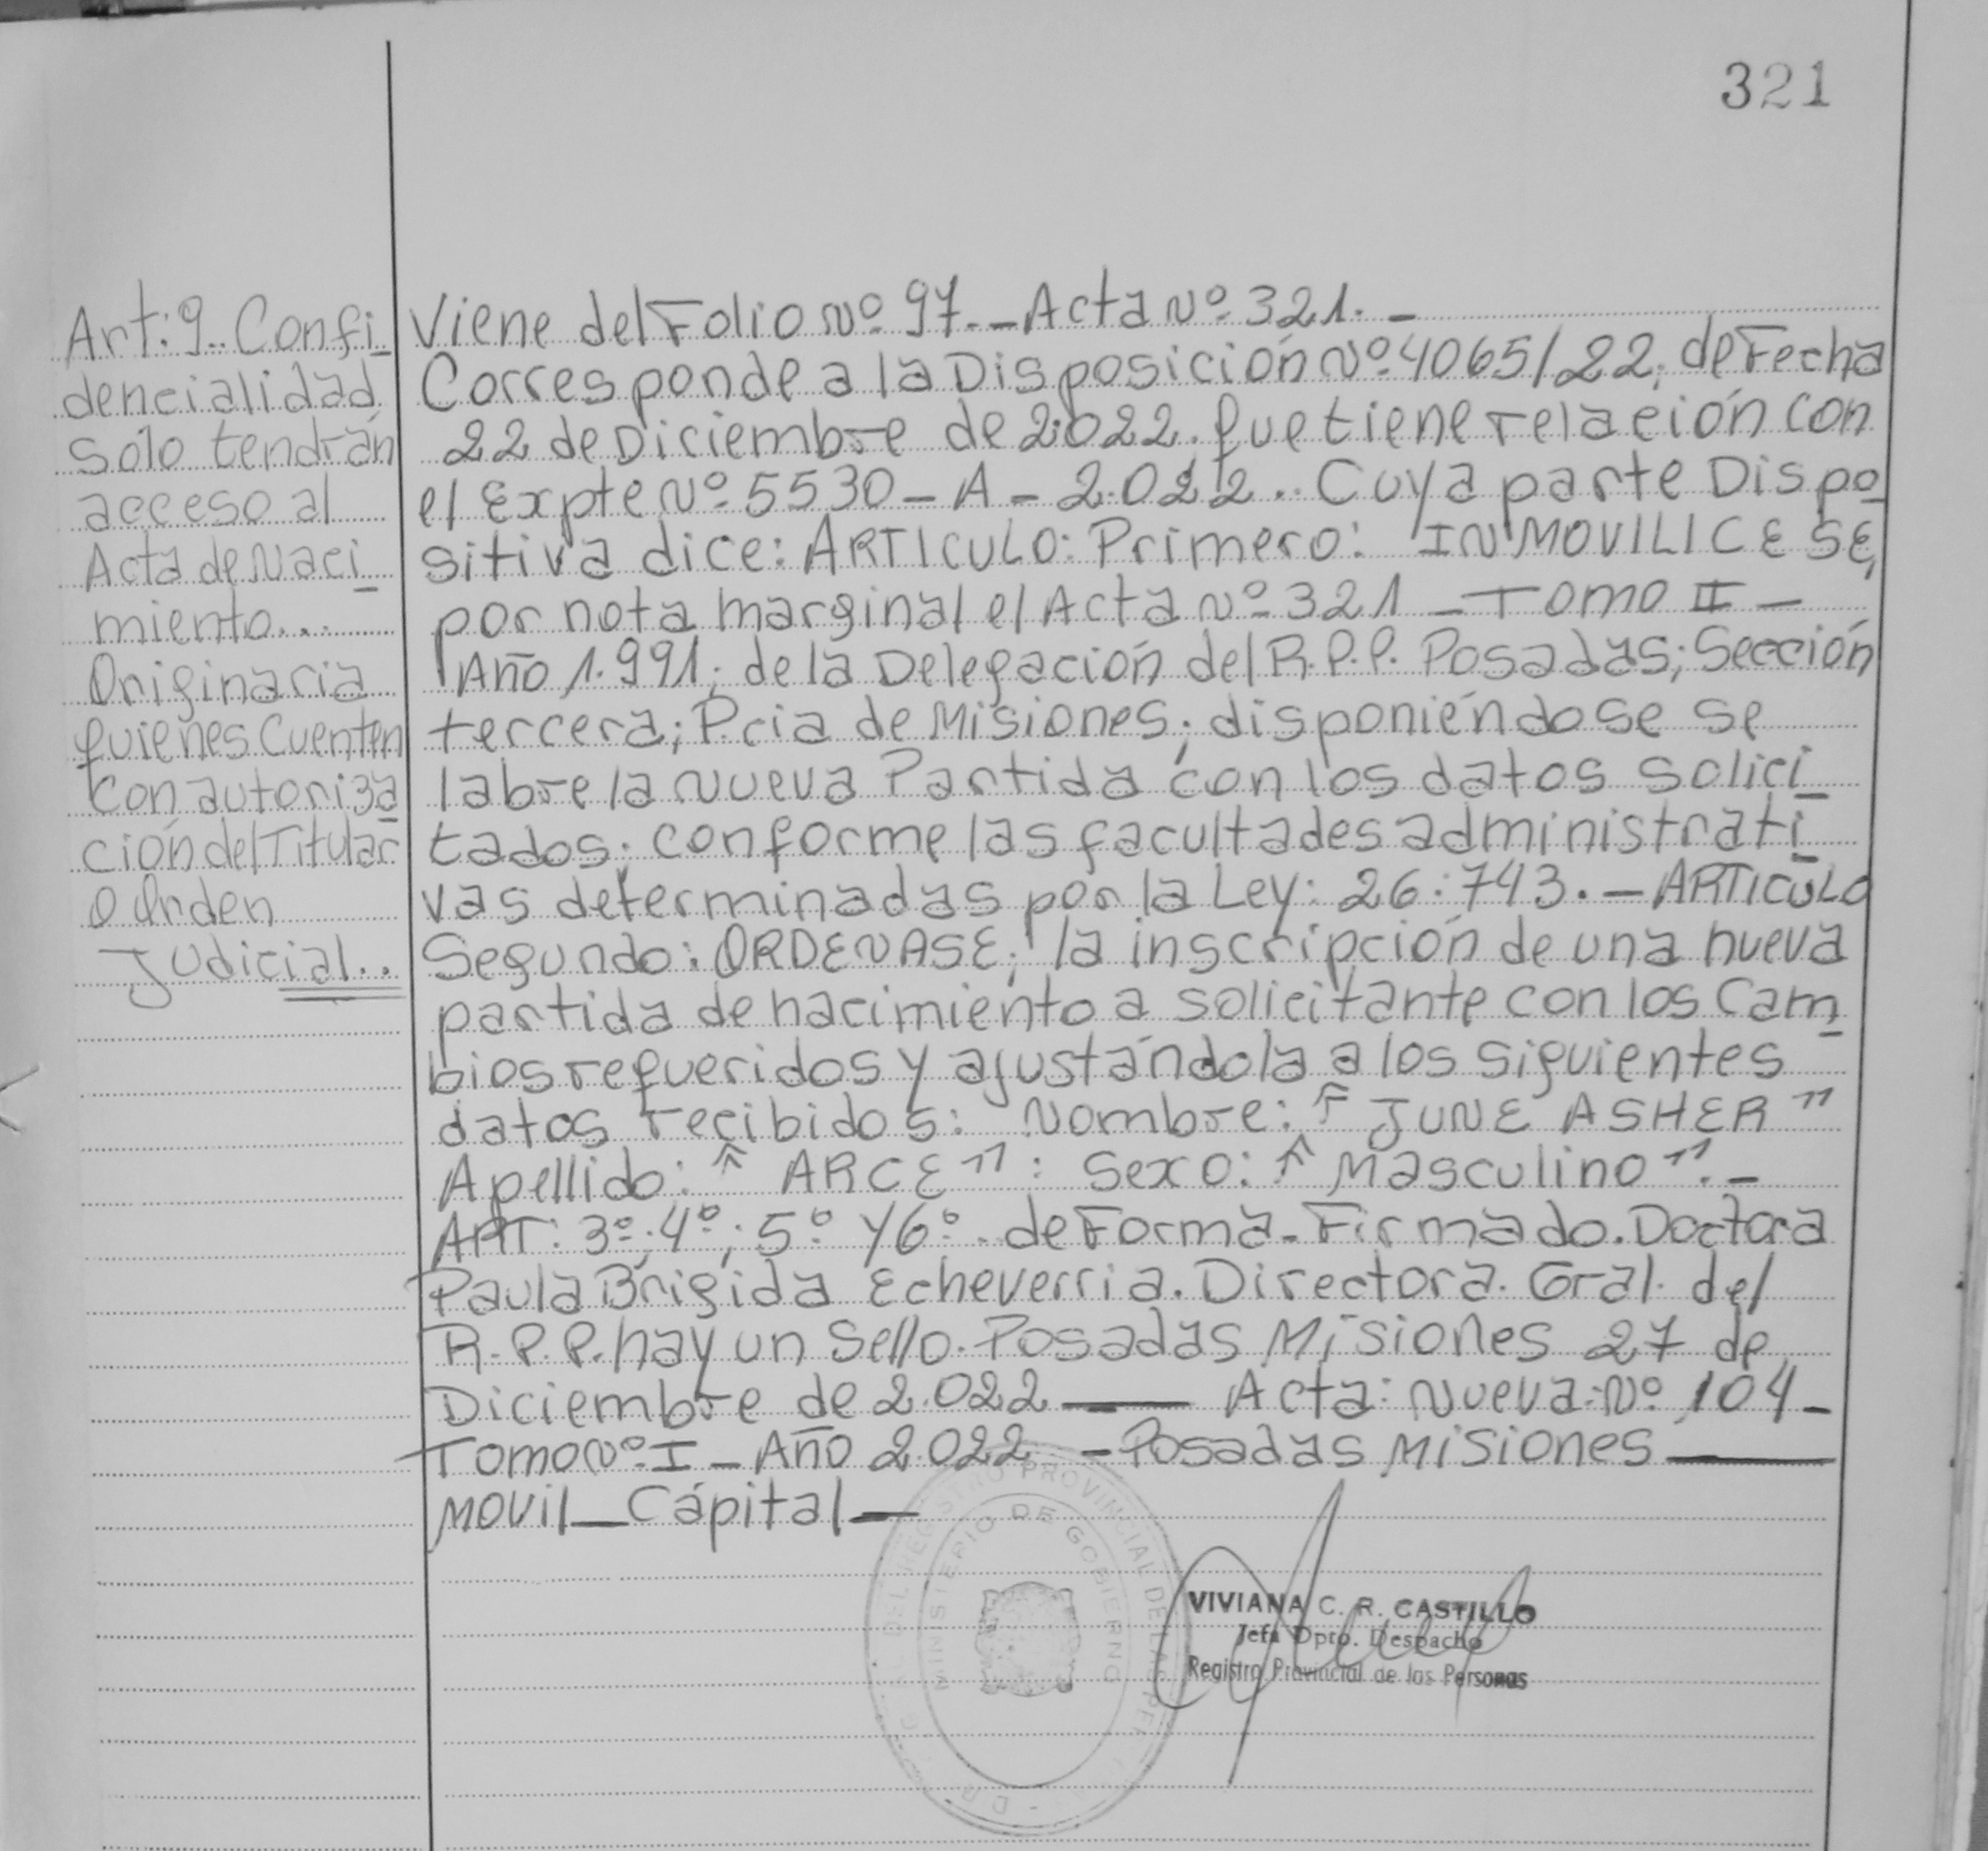 321
Art: 9.. Confi_
dencialidad
Sólo tendrán
acceso al
Acta de Naci_
miento...
Originaria
quienes Cuenten
Con autoriza_
ción del Titular
O Orden
Judicial..
Viene del Folio Nº 97.-Acta Nº 321.-
Corresponde a la Disposición Nº 4065/22; de Fecha
22 de Diciembre de 2.022. que tiene relación con
el Expte Nº 5530-A-2.022.. Cuya parte Dispo_
sitiva dice: ARTICULO: Primero: INMOVILICE SE,
por nota marginal el Acta Nº 321 - Tomo II -
Año 1.991; de la Delegación del R.P.P. Posadas; Sección
tercera; P.cia de Misiones; disponiéndose se
labre la nueva Partida con los datos solici_
tados; conforme las facultades administrati_
vas determinadas por la Ley: 26:743.- ARTICULO
Segundo: ORDENASE; la inscripción de una nueva
partida de nacimiento a solicitante con los Cam_
bios requeridos y ajustándola a los siguientes
datos recibidos: Nombre: "JUNE ASHER"
Apellido: "ARCE": Sexo: "Masculino".-
ART: 3º; 4º; 5º y 6º. de Forma-Firmado. Doctora
Paula Brigida Echeverria. Directora. Gral. del
R.P.P. hay un Sello. Posadas Misiones 27 de
Diciembre de 2.022 — Acta: Nueva: Nº 104-
Tomo Nº I - Año 2.022 - Posadas Misiones —
Movil_Cápital—
REGISTRO PROVINCIAL DE LAS PER
MINISTERIO DE GOBIERNO
VIVIANA C. R. CASTILLO
Jefa Dpto. Despacho
Registro Provincial de las Personas